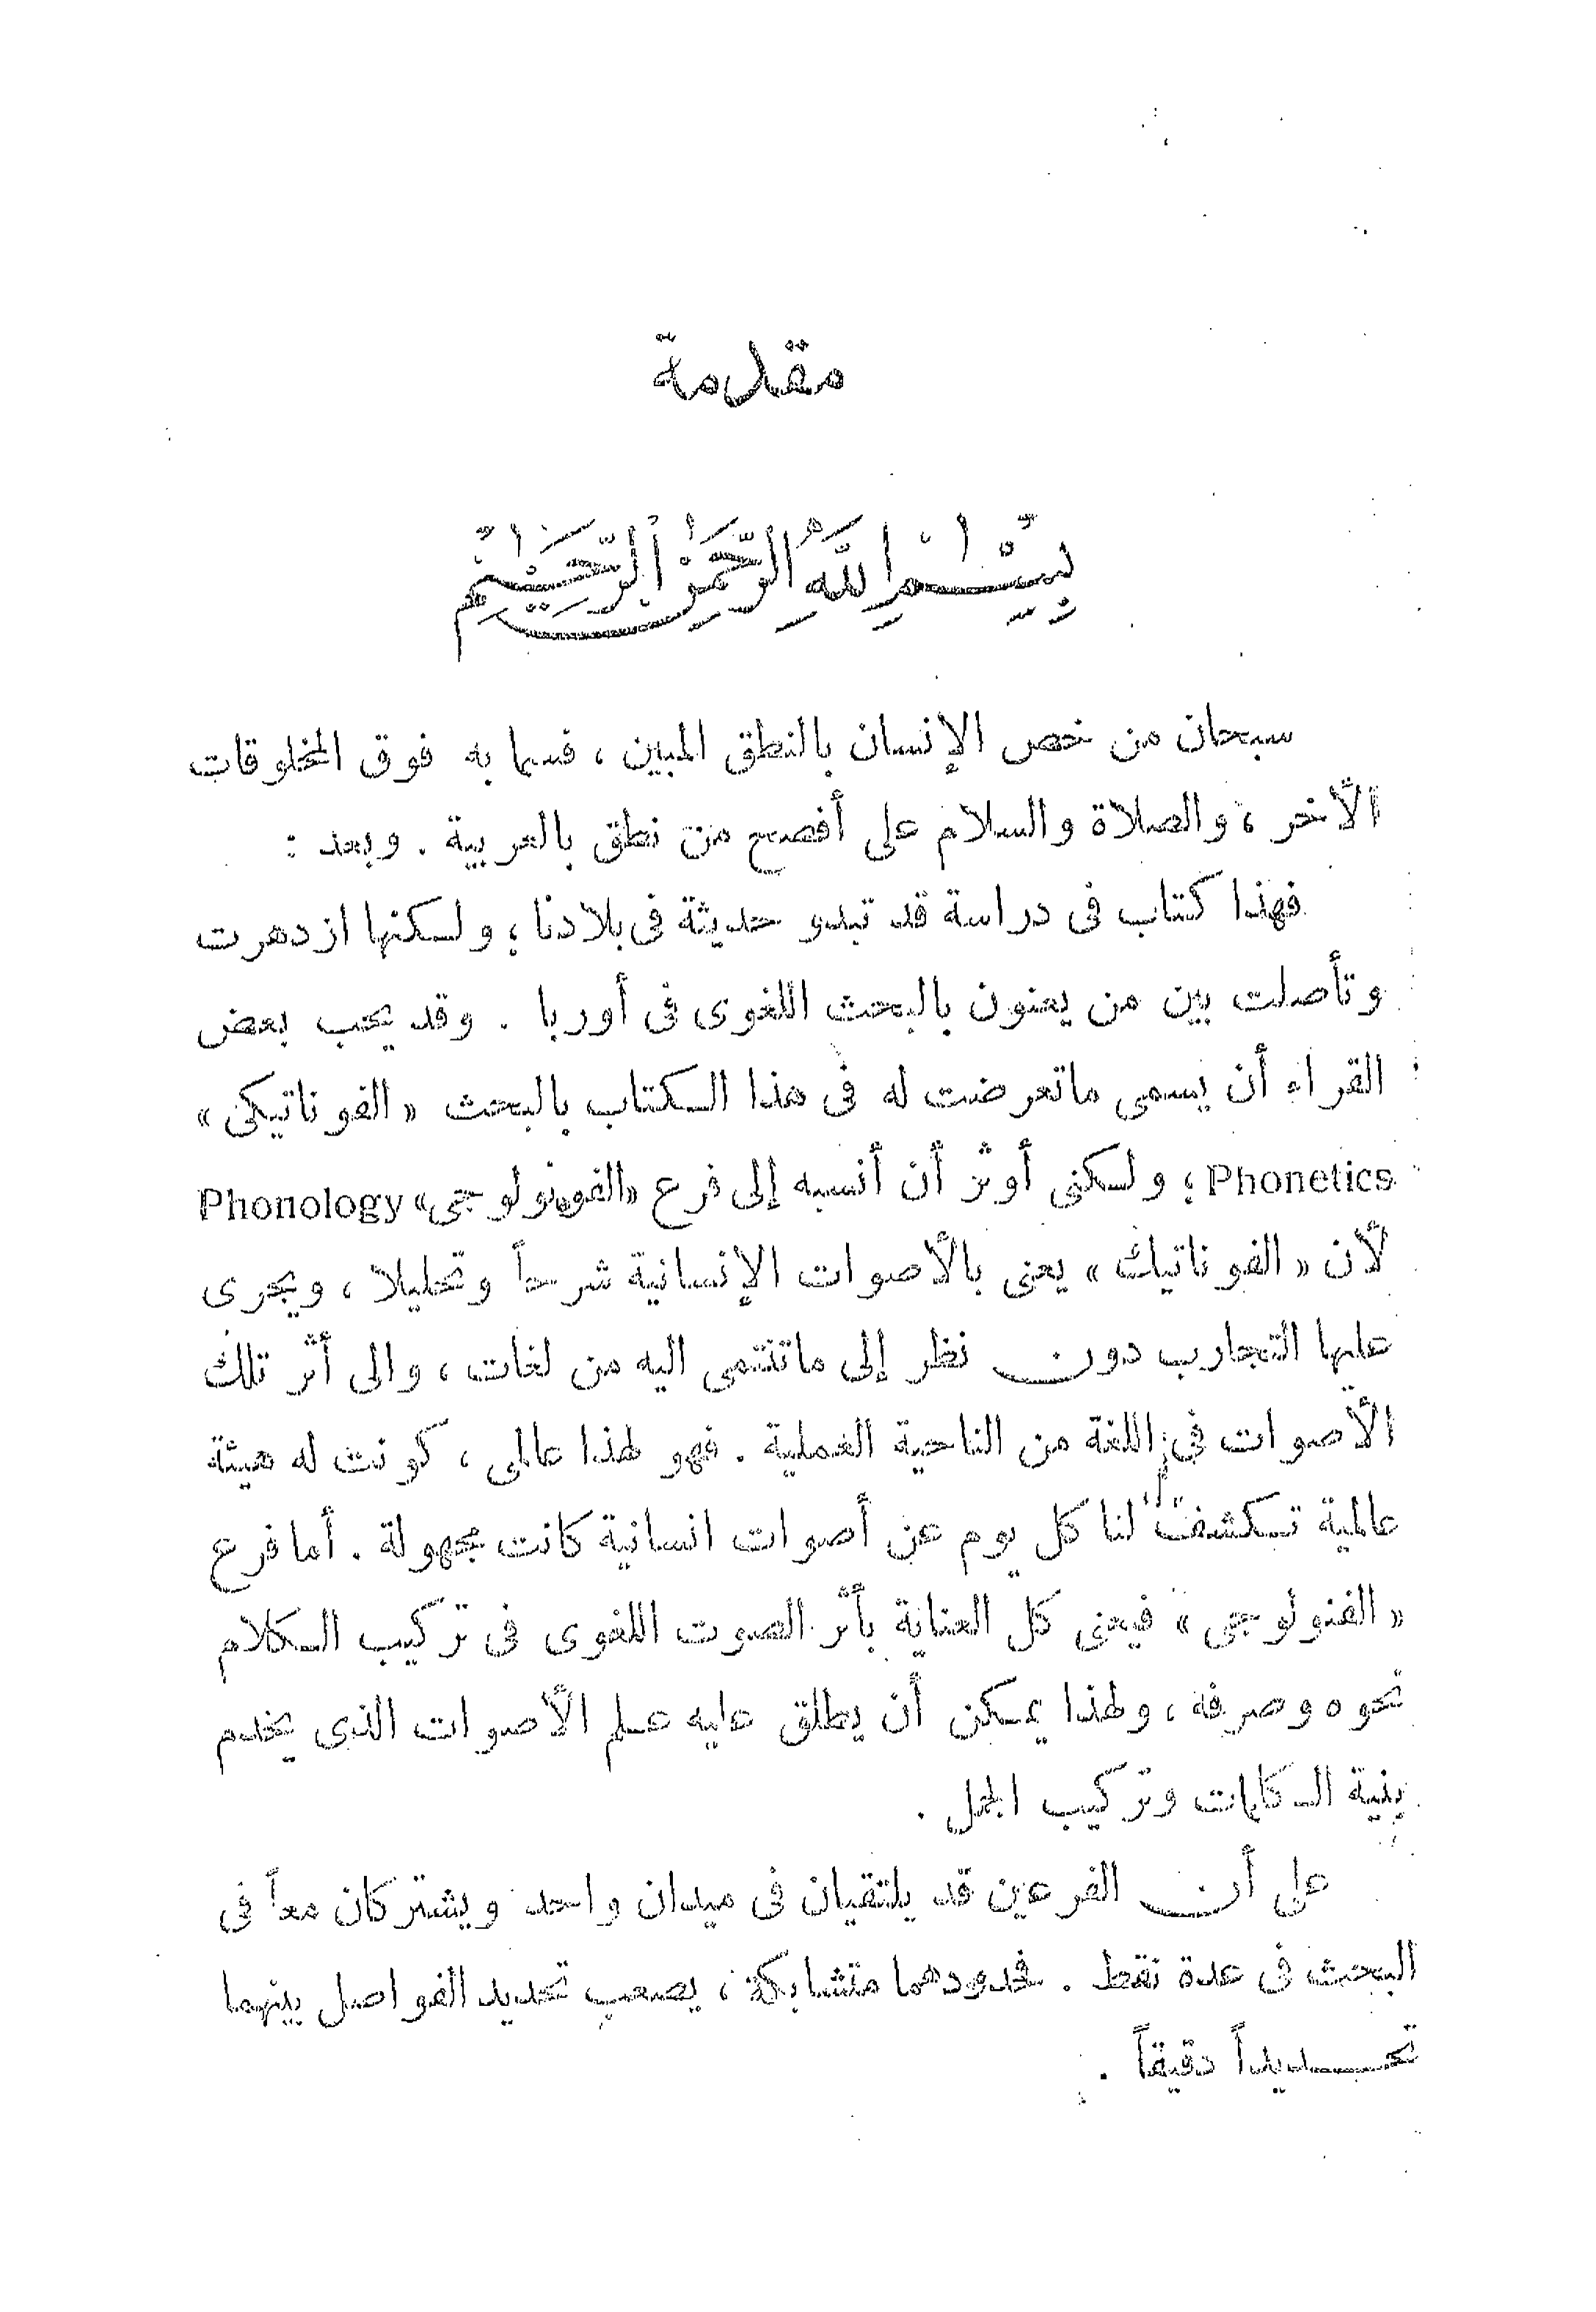 مقدمة
بِسْمِ اللَّهِ الرَّحْمَنِ الرَّحِيمِ
سبحان من خص الإنسان بالنطق المبين ، فسما به فوق المخلوقات
الأخر ، والصلاة والسلام على أفصح من نطق بالعربية . وبعد :
فهذا كتاب فى دراسة قد تبدو حديثة فى بلادنا ؛ ولكنها ازدهرت
وتأصلت بين من يعنون بالبحث اللغوى فى أوربا . وقد يحب بعض
القراء أن يسمى ماتعرضت له فى هذا الكتاب بالبحث « الفوناتيكى »
Phonetics ؛ ولكنى أوثر أن أنسبه إلى فرع «الفونولوجى» Phonology
لأن « الفوناتيك » يعنى بالأصوات الإنسانية شرحاً وتحليلا ، ويجرى
عليها التجارب دون نظر إلى ماتنتمى اليه من لغات ، والى أثر تلك
الأصوات فى اللغة من الناحية العملية . فهو لهذا عالمى ، كونت له هيئة
عالمية تكشف لنا كل يوم عن أصوات انسانية كانت مجهولة . أما فرع
« الفنولوجى » فيعنى كل العناية بأثر الصوت اللغوى فى تركيب الكلام
نحوه وصرفه ، ولهذا يمكن أن يطلق عليه علم الأصوات الذى يخدم
بنية الكلمات وتركيب الجمل .
على أن الفرعين قد يلتقيان فى ميدان واحد ويشتركان معاً فى
البحث فى عدة نقط . فحدودهما متشابكة ، يصعب تحديد الفواصل بينهما
تحديداً دقيقاً .